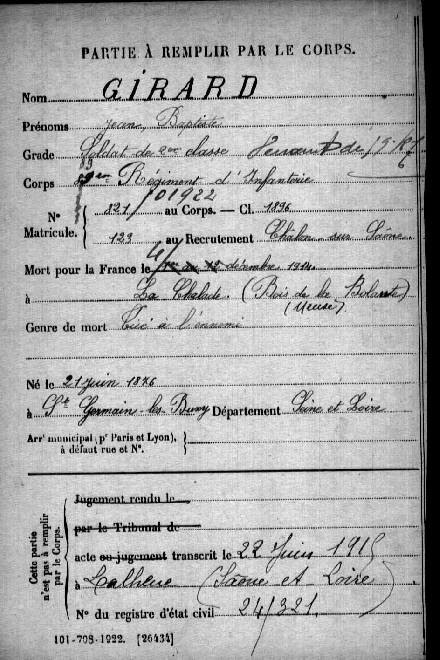 PARTIE À REMPLIR PAR LE CORPS.
Nom GIRARD
Prénoms Jean, Baptiste
Grade Soldat de 2me classe
Corps Régiment d'Infanterie
01922
N° Matricule. { 821 au Corps. — Cl. 1896
123 au Recrutement Chalon sur Saône
Mort pour la France le 4 décembre 1914
à La Chalade. (Bois de la Bolante)
(Meuse)
Genre de mort Tué à l'ennemi
Né le 21 juin 1876
à St Germain-les-Buxy Département Saône et Loire
Arrt municipal (pr Paris et Lyon), à défaut rue et N°.
Cette partie n'est pas à remplir par le Corps.
Jugement rendu le
par le Tribunal de
acte ou jugement transcrit le 22 Juin 1915
à Lalheue (Saône et Loire)
N° du registre d'état civil 24/321
101-708-1922. [26434]